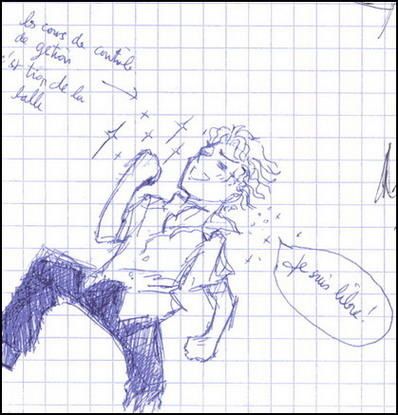 les cours de contrôle
de gestion
c'est trop de la
balle
Je suis libre!